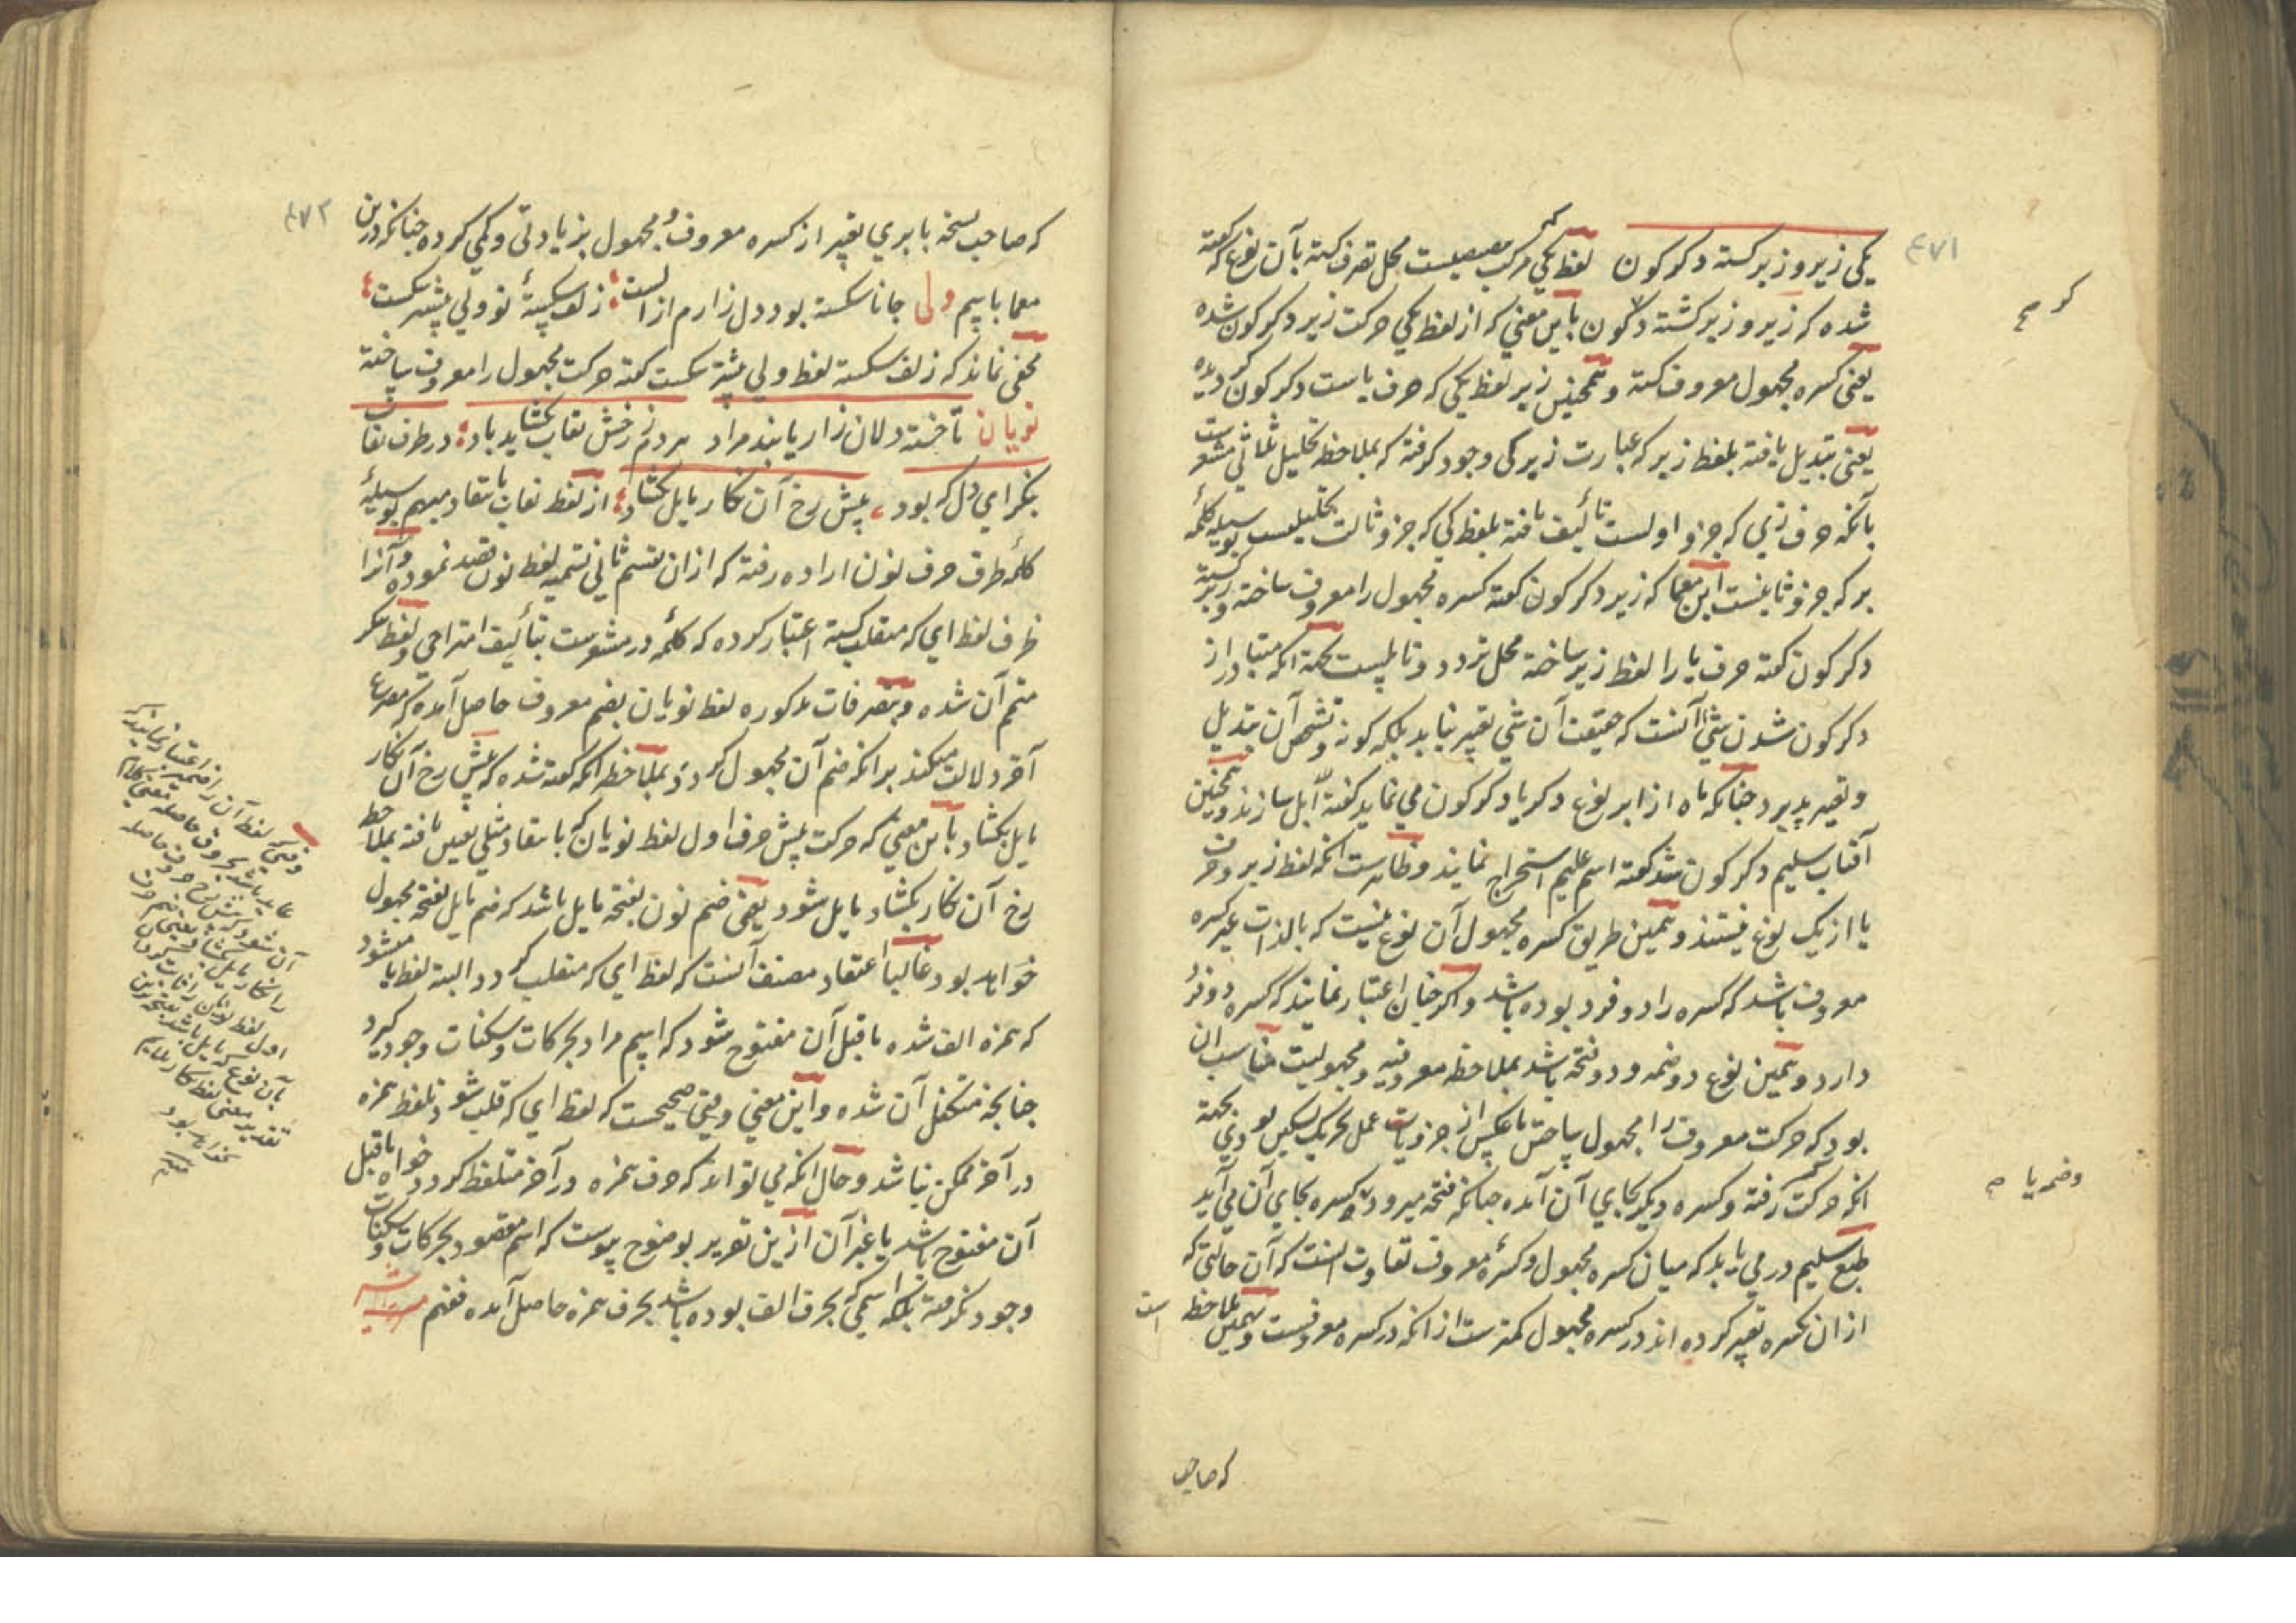 ۴۷۱
یکی زیر و زبر کشته دکرکون لفظ یکی مرکب محل تصرف کشته بآن نوع که کفته
شده که زیر و زبر کشته دکرکون باین معنی که از لفظ یکی حرکت زیر دکرکون شده
یعنی کسره مجهول معروف کشته و همچنین زیر لفظ یکی که حرف یاست دکرکون کردیده
یعنی تبدیل یافته بلفظ زیر که عبارت زیر کی وجود کرفته که بملاحظه تحلیل ثلاثی مشعرست
بآنکه حرف زی که جزو اولست تألیف یافته بلفظ کی که جزو ثالث تحلیلست بوسیله کلمه
بر که جزو ثانیست این معما که زیر دکرکون کفته کسره مجهول را معروف ساخته و زیر کشته
دکرکون کفته حرف یا را لفظ زیر ساخته محل تردد و تاملست بجهة انکه متبادر از
دکرکون شدن شئ آنست که حقیقت آن شی تغییر نیابد بلکه کونه و تشخص آن تبدیل
و تغییر پذیرد چنانکه ماه از ابر نوع دکر یا دکرکون می نماید کفته ابل سازند و همچنین
آفتاب سلیم دکرکون شد کفته اسم علیم استخراج نمایند و ظاهرست انکه لفظ زیر و حرف
یا از یک نوع نیستند و همین طریق کسره مجهول آن نوع نیست که بالذات غیر کسره
معروف باشد که کسره را دو فرد بوده باشد و اکر چنان اعتبار نمایند که کسره دو فرد
دارد و همین نوع دو ضمه و دو فتحه باشد بملاحظه معروفیه و مجهولیت مناسب ان
بود که حرکت معروف را مجهول ساختن یا عکس از جزویات عمل تحریک تسکین بودی بجهة
انکه حرکت رفته و کسره دیکر بجای آن آمده چنانکه فتحه میرود و کسره بجای آن می آید
طبع سلیم در می یابد که میان کسره مجهول و کسره معروف تفاوت اینست که آن حالتی که
از ان بکسره تعبیر کرده اند در کسره مجهول کمترست از انکه در کسره معروفست و همین ملاحظه است
وضمه یا صح
که صاحب
۴۷۲
که صاحب نسخه بابری تعبیر از کسره معروف و مجهول بزیادتی و کمی کرده چنانکه درین
معما باسم ولی جانا شکسته بود دل زارم از الست زلف شکسته تو ولی بیشتر شکست
مخفی نماند که زلف شکسته لفظ ولی بیشتر شکست کفته حرکت مجهول را معروف ساخته
نویان تا خسته دلان زار یابند مراد هر دم ز رخش نقاب بکشاید باد در طرف نقاب
بنکر ای دل که بود پیش رخ آن نکار مایل بکشاد از لفظ نقاب بانتقاد مبهم بوسیله
کلمه طرف حرف نون اراده رفته که از ان بقسم ثانی تسمیه لفظ نون قصد نموده و آنرا
ظرف لفظ ای که منقلب کشته اعتبار کرده که کلمه در مشعرست بتألیف امتزاجی و لفظ بنکر
متمم آن شده و بتصرفات مذکوره لفظ نویان بضم معروف حاصل آمده که مصرع
آخر دلالت میکند برانکه ضم آن مجهول کردد بملاحظه انکه کفته شده که پیش رخ آن نکار
مایل بکشاد باین معنی که حرکت پیش حرف اول لفظ نویان که بانتقاد مثلی تعیین یافته بملاحظه
رخ آن نکار بکشاد مایل شود یعنی ضم نون بفتحه مایل باشد که ضم مایل بفتحه مجهول
خواهد بود غالبا اعتقاد مصنف آنست که لفظ ای که منقلب کردد البته لفظ یا میشود
که همزه الف شده ماقبل آن مفتوح شود که اسم مراد بحرکات و سکنات وجود کیرد
چنانچه متکفل آن شده و این معنی وقتی صحیحست که لفظ ای که قلب شود تلفظ همزه
در آخر ممکن نباشد و حال انکه می تواند که حرف همزه در آخر متلفظ کردد خواه ماقبل
آن مفتوح باشد یا غیر آن ازین تقریر بوضوح پیوست که اسم مقصود بحرکات و سکنات
وجود نکرفته بلکه اسمی که بحرف الف بوده باشد بحرف همزه حاصل آمده فتفهم